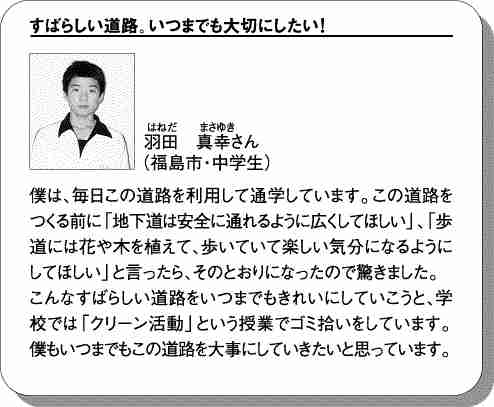 すばらしい道路。いつまでも大切にしたい！
はねだ　まさゆき
羽田　真幸さん
（福島市・中学生）
僕は、毎日この道路を利用して通学しています。この道路を
つくる前に「地下道は安全に通れるように広くしてほしい」、「歩
道には花や木を植えて、歩いていて楽しい気分になるように
してほしい」と言ったら、そのとおりになったので驚きました。
こんなすばらしい道路をいつまでもきれいにしていこうと、学
校では「クリーン活動」という授業でゴミ拾いをしています。
僕もいつまでもこの道路を大事にしていきたいと思っています。